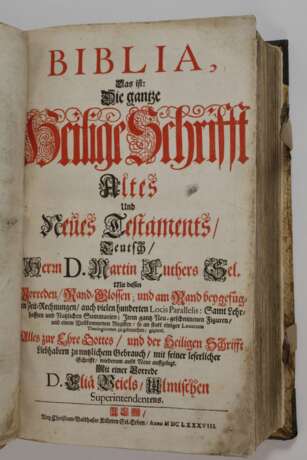 BIBLIA,
Das ist:
Die gantze
Heilige Schrifft
Altes
Und
Neues Testaments/
Teutsch/
Herrn D. Martin Luthers Sel.
Mit dessen
Vorreden/ Rand-Glossen/ und am Rand beygefüg-
ten Zeit-Rechnungen/ auch vielen hunderten Locis Parallelis: Samt Lehr-
hafften und Nützlichen Summarien;
und einem Vollkommenen Register
Alles zur Ehre Gottes/ und der Heiligen Schrifft
Liebhabern zu nutzlichem Gebrauch/ mit seiner leserlicher
Schrifft/ wiederum auffs Neue auffgelegt.
Mit einer Vorrede
D. Eliä Veiels/ Ulmischen
Superintendentens.
ULM/
Anno M DC LXXXVIII.